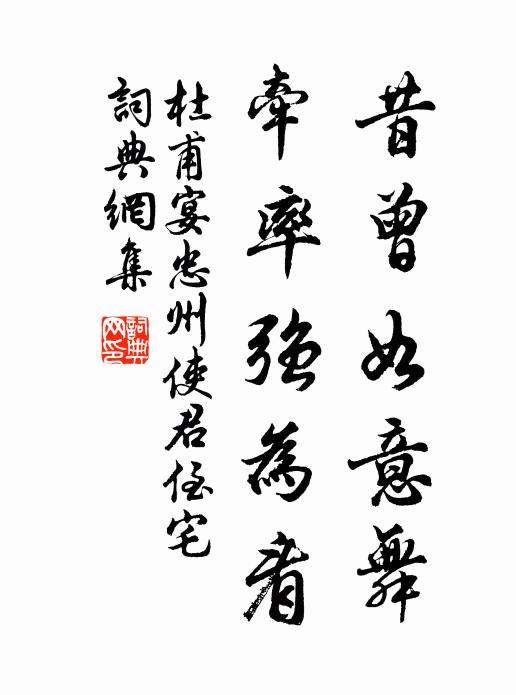 昔曾如意舞
牽率強為看
杜甫宴忠州使君侄宅
詞典網集
詞典网印